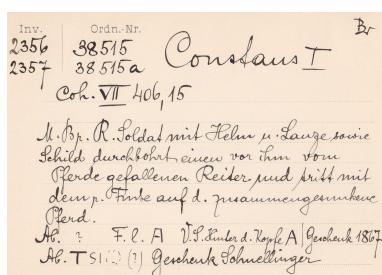 Br
Inv. Ordn.-Nr.
2356 38515 Constans I
2357 38515a
Coh. VII 406,15
M. Bp. R. Soldat mit Helm u. Lanze sowie
Schild durchbohrt einen vor ihm vom
Pferde gefallenen Reiter und tritt mit
dem r. Fuße auf d. zusammengesunkene
Pferd.
Ab. ? F. l. A V. S. hinter d. Kopfe A Geschenk 1867
Ab. TSI (?) Geschenk Schnellinger